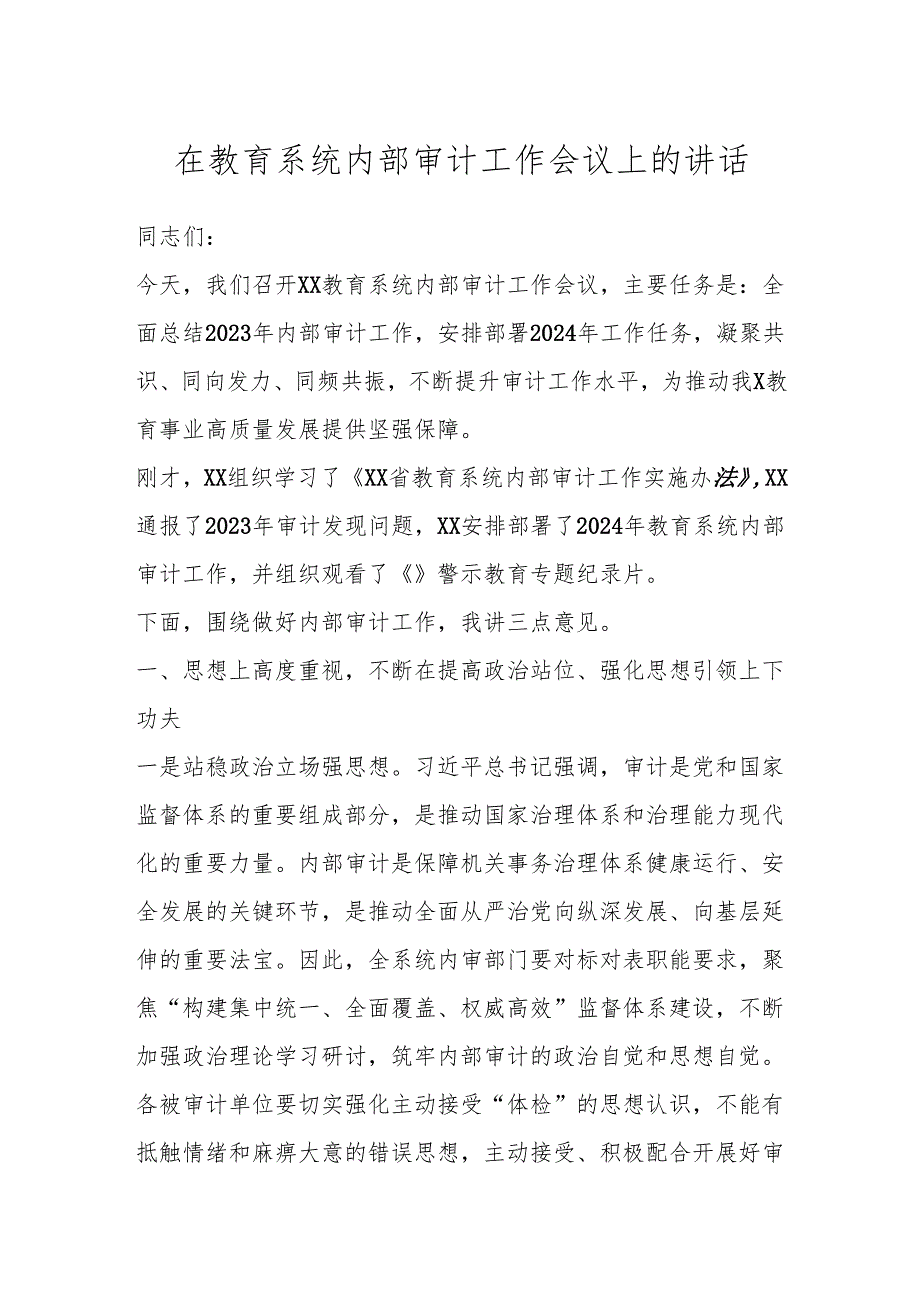 在教育系统内部审计工作会议上的讲话
同志们：
今天，我们召开XX教育系统内部审计工作会议，主要任务是：全
面总结2023年内部审计工作，安排部署2024年工作任务，凝聚共
识、同向发力、同频共振，不断提升审计工作水平，为推动我X教
育事业高质量发展提供坚强保障。
刚才，XX组织学习了《XX省教育系统内部审计工作实施办法》，XX
通报了2023年审计发现问题，XX安排部署了2024年教育系统内部
审计工作，并组织观看了《》警示教育专题纪录片。
下面，围绕做好内部审计工作，我讲三点意见。
一、思想上高度重视，不断在提高政治站位、强化思想引领上下
功夫
一是站稳政治立场强思想。习近平总书记强调，审计是党和国家
监督体系的重要组成部分，是推动国家治理体系和治理能力现代
化的重要力量。内部审计是保障机关事务治理体系健康运行、安
全发展的关键环节，是推动全面从严治党向纵深发展、向基层延
伸的重要法宝。因此，全系统内审部门要对标对表职能要求，聚
焦“构建集中统一、全面覆盖、权威高效”监督体系建设，不断
加强政治理论学习研讨，筑牢内部审计的政治自觉和思想自觉。
各被审计单位要切实强化主动接受“体检”的思想认识，不能有
抵触情绪和麻痹大意的错误思想，主动接受、积极配合开展好审